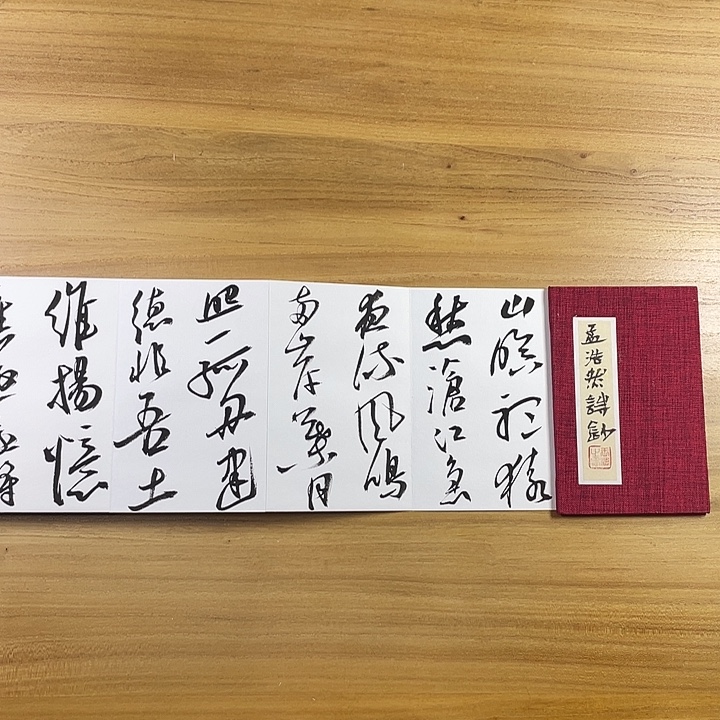 孟浩然詩鈔
山暝聽猿
愁滄江急
夜流風鳴
兩岸葉月
照一孤舟建
德非吾土
維揚憶